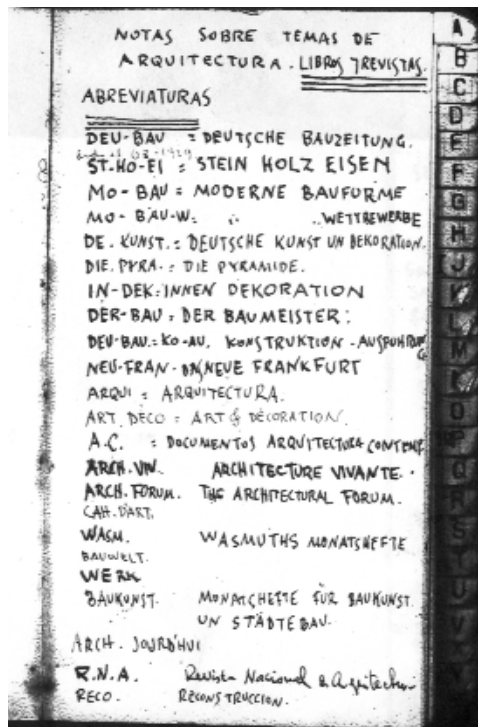 NOTAS SOBRE TEMAS DE
ARQUITECTURA. LIBROS Y REVISTAS.
ABREVIATURAS
DEU-BAU = DEUTSCHE BAUZEITUNG.
ST.HO-EI = STEIN HOLZ EISEN
MO-BAU = MODERNE BAUFORME
MO-BAU-W. = " " WETTBEWERBE
DE. KUNST. = DEUTSCHE KUNST UN DEKORATION.
DIE. PYRA. = DIE PYRAMIDE.
IN-DEK: INNEN DEKORATION
DER-BAU = DER BAUMEISTER:
DEU-BAU.= KO-AU. KONSTRUKTION - AUSFUHRUNG
NEU-FRAN - DAS NEUE FRANKFURT
ARQUI = ARQUITECTURA.
ART. DECO = ART & DÉCORATION.
A.C. = DOCUMENTOS ARQUITECTURA CONTEMP
ARCH. VIV. ARCHITECTURE VIVANTE.
ARCH. FORUM. THE ARCHITECTURAL FORUM.
CAH. D'ART.
WASM. WASMUTHS MONATSHEFTE
BAUWELT.
WERK
BAUKUNST. MONATCHEFTE FÜR BAUKUNST.
UN STÄDTEBAU.
ARCH. JOURD'HUI
R.N.A. Revista Nacional de Arquitectura
RECO. RECONSTRUCCION.
A
B
C
D
E
F
G
H
J
K
L
M
O
P
Q
R
S
T
U
V